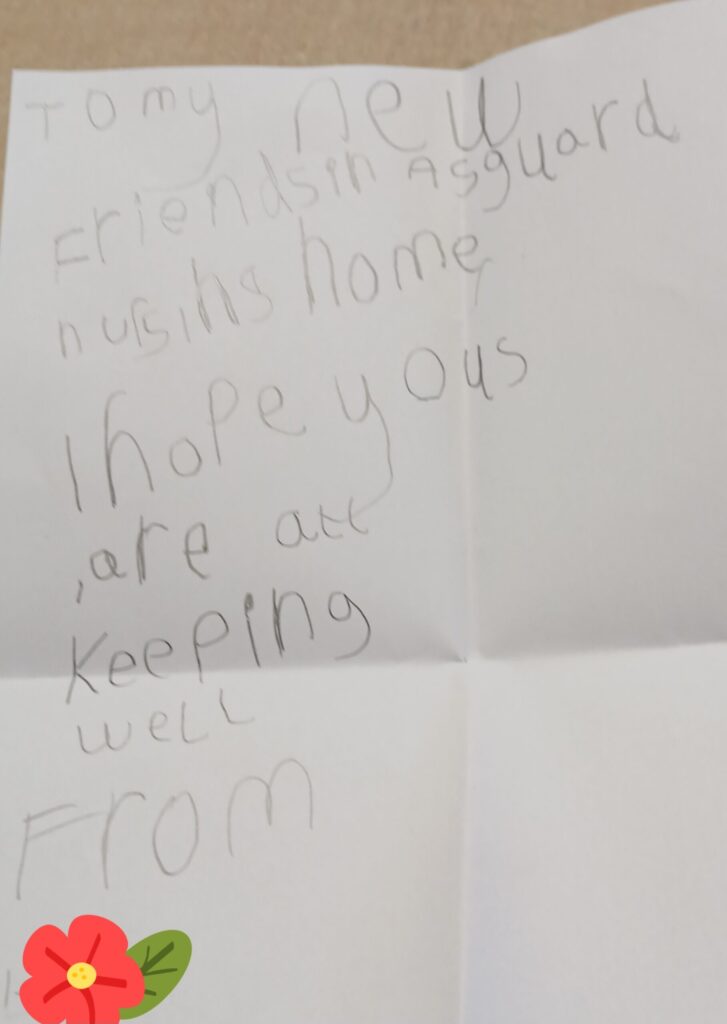 To my new
Friends in Asguard
nursihs home
I hope yous
, are all
Keeping
well
From